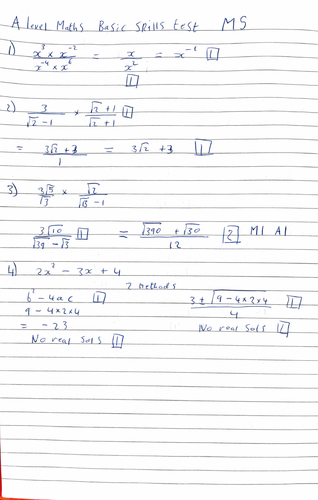 A level Maths Basic Skills test MS
1) x³ × x⁻² / x⁻⁴ × x⁶ = x / x² = x⁻¹ [1]
[1]
2) 3 / √2 - 1 × √2 + 1 / √2 + 1 [1]
= 3√2 + 3 / 1 = 3√2 + 3 [1]
3) 3√5 / √3 × √2 /
3√10 / √39 - √3 [1] = √390 + √30 / 12 [2] M1 A1
4) 2x² - 3x + 4
2 methods
b² - 4ac [1] 3 ± √9 - 4×2×4 / 4 [1]
9 - 4×2×4
= -23 No real sols [1]
No real sols [1]